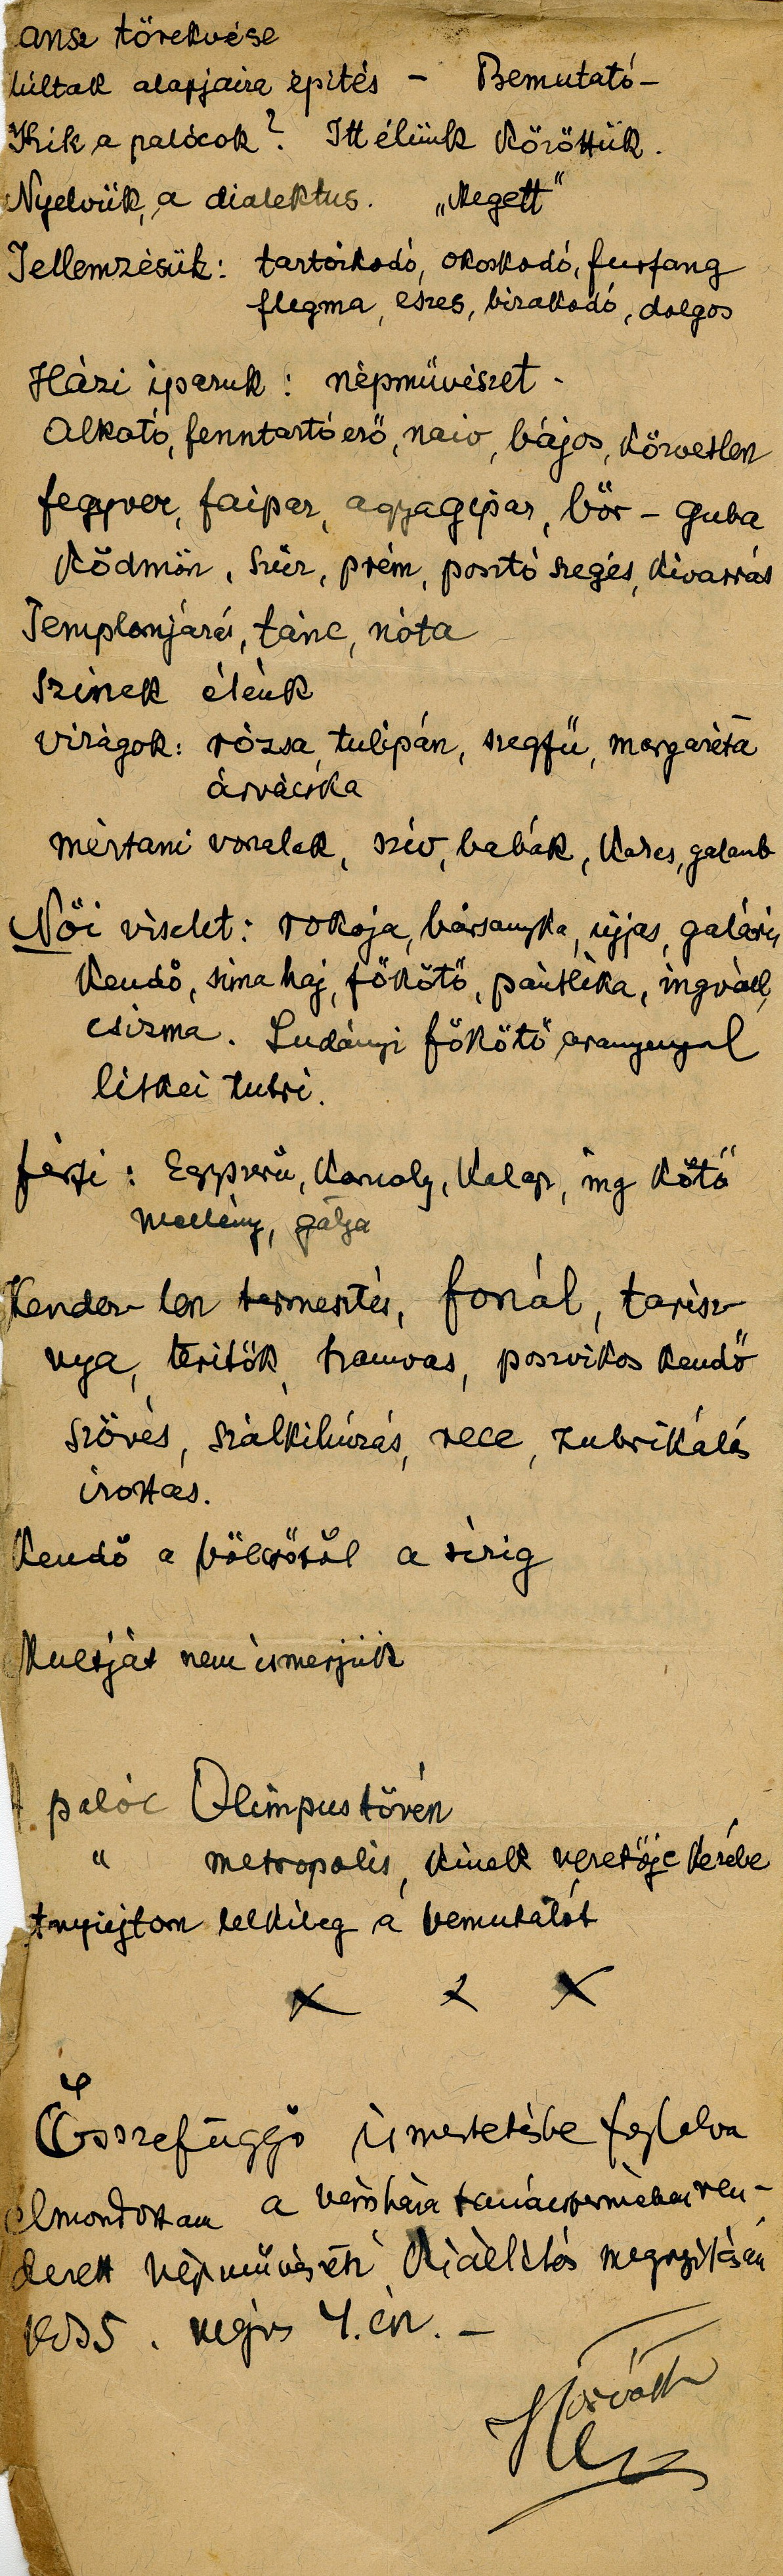 anse törekvése
últak alapjaira építés – Bemutató –
Kik a palócok? Itt élünk köröttük.
Nyelvük, a dialektus. „Megett"
Jellemzésük: tartózkodó, okoskodó, furfang
flegma, eszes, bizakodó, dolgos
Házi iparuk: népművészet -
Alkotó, fenntartó erő, naiv, bájos, közvetlen
fegyver, faipar, agyagipar, bőr – guba
Ködmön, szűr, prém, posztó szegés, kivarrás
Templomjárás, tánc, nóta
Színek élénk
Virágok: rózsa, tulipán, szegfű, margaréta
árvácska
mértani vonalak, szív, babák, kakas, galamb
Női viselet: rokoja, bársonyka, ujjas, galáris
Kendő, sima haj, főkötő, pántlika, ingváll,
csizma. Ludányi főkötő arannyal
litkei tutri.
férfi: Egyszerű, Karcoly, Kalap, ing kötő
Mellény, gatya
Kender len termesztés, fonál, tarisz-
nya, terítők, hamvas, poszrikos kendő
Szövés, szálkihúzás, rece, zubrikálás
írottas.
Kendő a bölcsőtől a sírig
Multját nem ismerjük
palóc Olimpus tövén
" metropolis, kinek vezetője kezébe
nyújtom lelkileg a bemutatót
x x x
Összefüggő ismertetésbe foglalva
elmondottam a városháza tanácstermében ren-
dezett népművészeti kiállítás megnyitásán
1955. május 4.én. –
Horváth